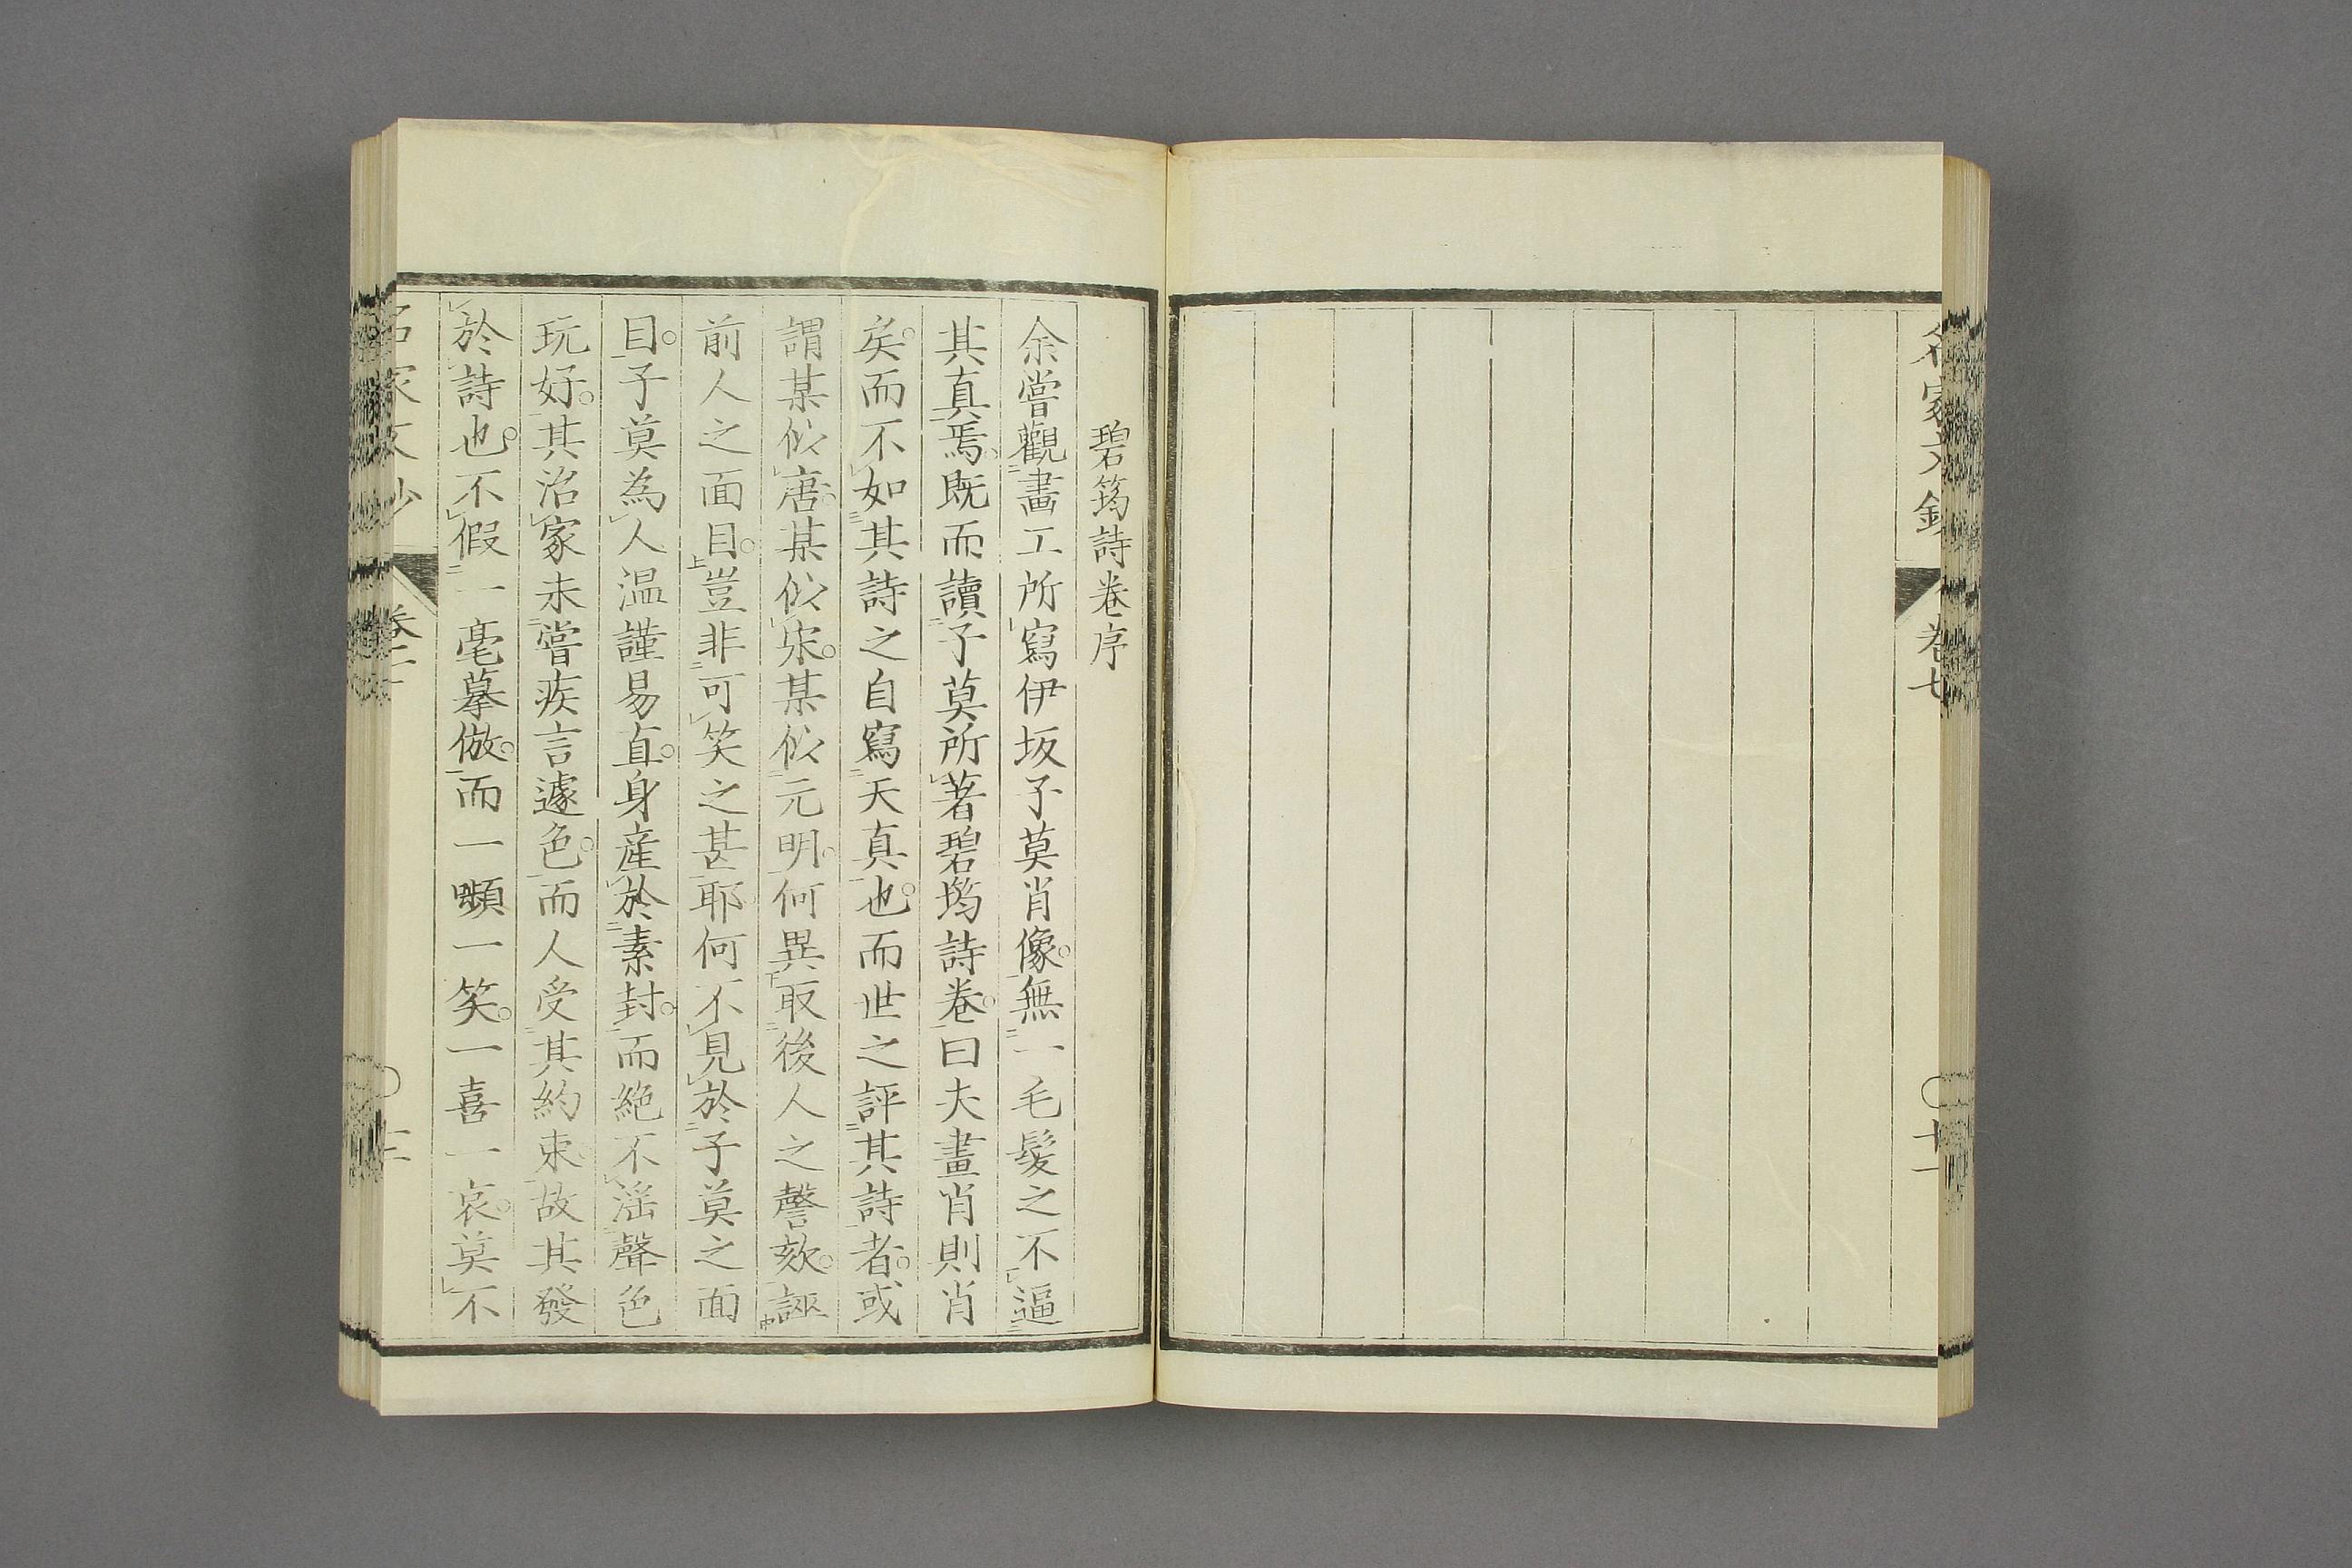 名家文鈔
卷七
十一
碧筠詩卷序
余嘗觀畵工所寫伊坂子莫肖像。無一毛髮之不逼
其真焉。既而讀子莫所著碧筠詩卷。曰夫畫肖則肖
矣。而不如其詩之自寫天真也。而世之評其詩者。或
謂某似唐。某似宋。某似元明。何異取後人之謦欬。誣
前人之面目。豈非可笑之甚耶。何不見於子莫之面
目。子莫為人温謹易直。身産於素封。而絶不淫聲色
玩好。其治家未嘗疾言遽色。而人受其約束。故其發
於詩也。不假一毫摹倣。而一嚬一笑。一喜一哀。莫不
名家文鈔
三